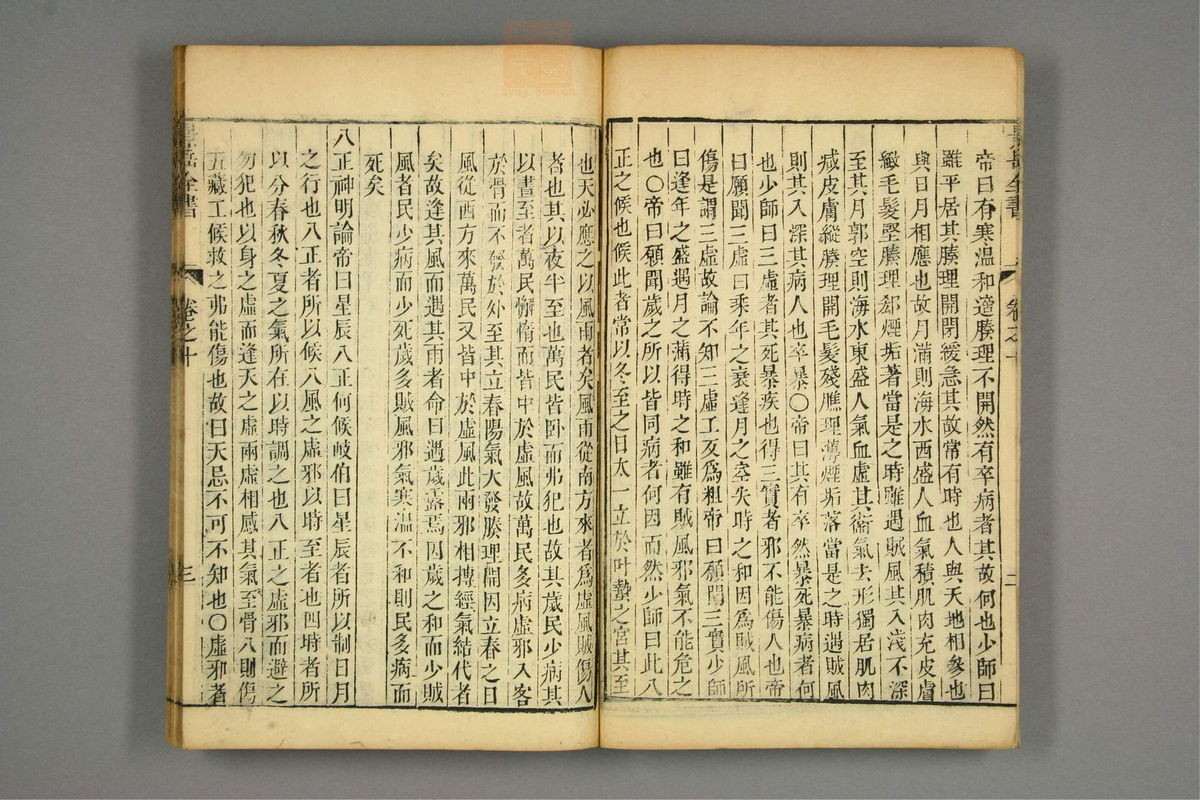 帝曰有寒温和適腠理不開然有卒病者其故何也少師曰
雖平居其腠理開閉緩急其故常有時也人與天地相參也
與日月相應也故月滿則海水西盛人血氣積肌肉充皮膚
緻毛髮堅腠理郄煙垢著當是之時雖遇賊風其入淺不深
至其月郭空則海水東盛人氣血虛其衛氣去形獨居肌肉
減皮膚縱腠理開毛髮殘膲理薄煙垢落當是之時遇賊風
則其入深其病人也卒暴○帝曰其有卒然暴死暴病者何
也少師曰三虛者其死暴疾也得三實者邪不能傷人也帝
曰願聞三虛曰乘年之衰逢月之空失時之和因爲賊風所
傷是謂三虛故論不知三虛工反爲粗帝曰願聞三實少師
曰逢年之盛遇月之滿得時之和雖有賊風邪氣不能危之
也○帝曰願聞歲之所以皆同病者何因而然少師曰此八
正之候也候此者常以冬至之日太一立於叶蟄之宮其至
也天必應之以風雨者矣風雨從南方來者爲虛風賊傷人
者也其以夜半至也萬民皆卧而弗犯也故其歲民少病其
以晝至者萬民懈惰而皆中於虛風故萬民多病虛邪入客
於骨而不發於外至其立春陽氣大發腠理開因立春之日
風從西方來萬民又皆中於虛風此兩邪相搏經氣結代者
矣故逢其風而遇其雨者命曰遇歲露焉因歲之和而少賊
風者民少病而少死歲多賊風邪氣寒温不和則民多病而
死矣
八正神明論帝曰星辰八正何候岐伯曰星辰者所以制日月
之行也八正者所以候八風之虛邪以時至者也四時者所
以分春秋冬夏之氣所在以時調之也八正之虛邪而避之
勿犯也以身之虛而逢天之虛兩虛相感其氣至骨入則傷
五藏工候救之弗能傷也故曰天忌不可不知也○虛邪者
景岳全書
卷之十
二
景岳全書
卷之十
三
zysj.com.cn